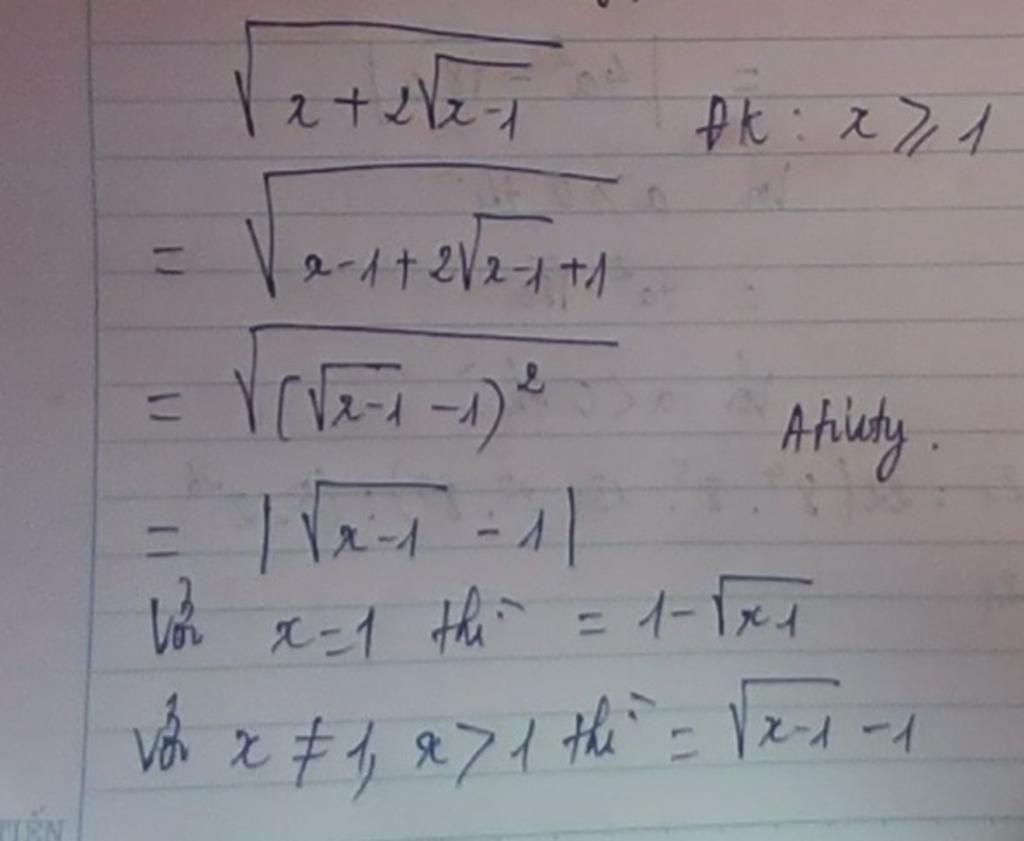 √(x+2√(x-1)) ĐK: x ≥ 1
= √(x-1+2√(x-1)+1)
= √((√(x-1) -1)²)
= |√(x-1) - 1|
Với x=1 thì = 1-√(x-1)
Với x ≠ 1, x > 1 thì = √(x-1) -1
TIẾN